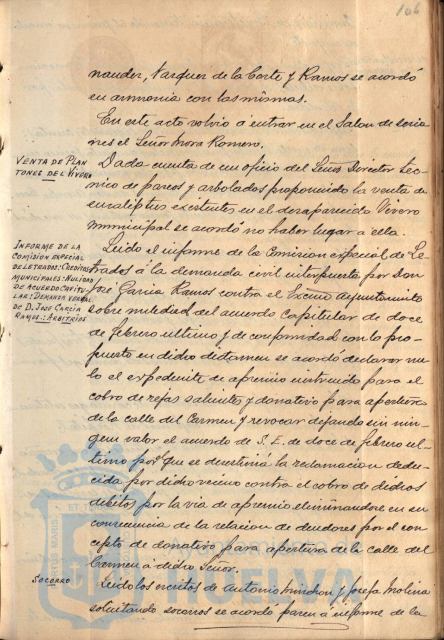 106
nander, Vazquez de la Corte y Ramos se acordó
en armonia con las mismas.
En este acto volvio a entrar en el Salon de sesio
nes el Señor Mora Romero.
VENTA DE PLAN
TONES DEL VIVERO
Dada cuenta de un oficio del Señor Director tec-
nico de paseos y arbolados proponiendo la venta de
eucaliptus existentes en el desaparecido Vivero
municipal se acordó no haber lugar a ella.
INFORME DE LA
COMISION ESPECIAL
DE LETRADOS: CREDITOS
MUNICIPALES: NULIDAD
DE ACUERDO CAPITU-
LAR: DEMANDA VERBAL
DE D. JOSE GARCIA
RAMOS: ARBITRIOS
Leido el informe de la Comision especial de Le-
trados á la demanda civil interpuesta por Don
José Garcia Ramos contra el Excmo Ayuntamiento
sobre nulidad del acuerdo capitular de doce
de febrero ultimo y de conformidad con lo pro-
puesto en dicho dictamen se acordó declarar nu
lo el expediente de apremio instruido para el
cobro de rejas salientes y donativo para apertura
de la calle del Carmen y revocar dejando sin nin-
gun valor el acuerdo de S. E. de doce de febrero ul-
timo por que se desestimó la reclamacion dedu-
cida por dicho vecino contra el cobro de dichos
debitos por la via de apremio eliminandose en su
consecuencia de la relacion de deudores por el con-
cepto de donativo para apertura de la calle del
Carmen a dicho Señor.
SOCORRO
Leidos los escritos de Antonio y Josefa Molina
solicitando socorros se acordó pasen á informe de la
PORTUS MARIS ET
Ayuntamiento de
HUELVA